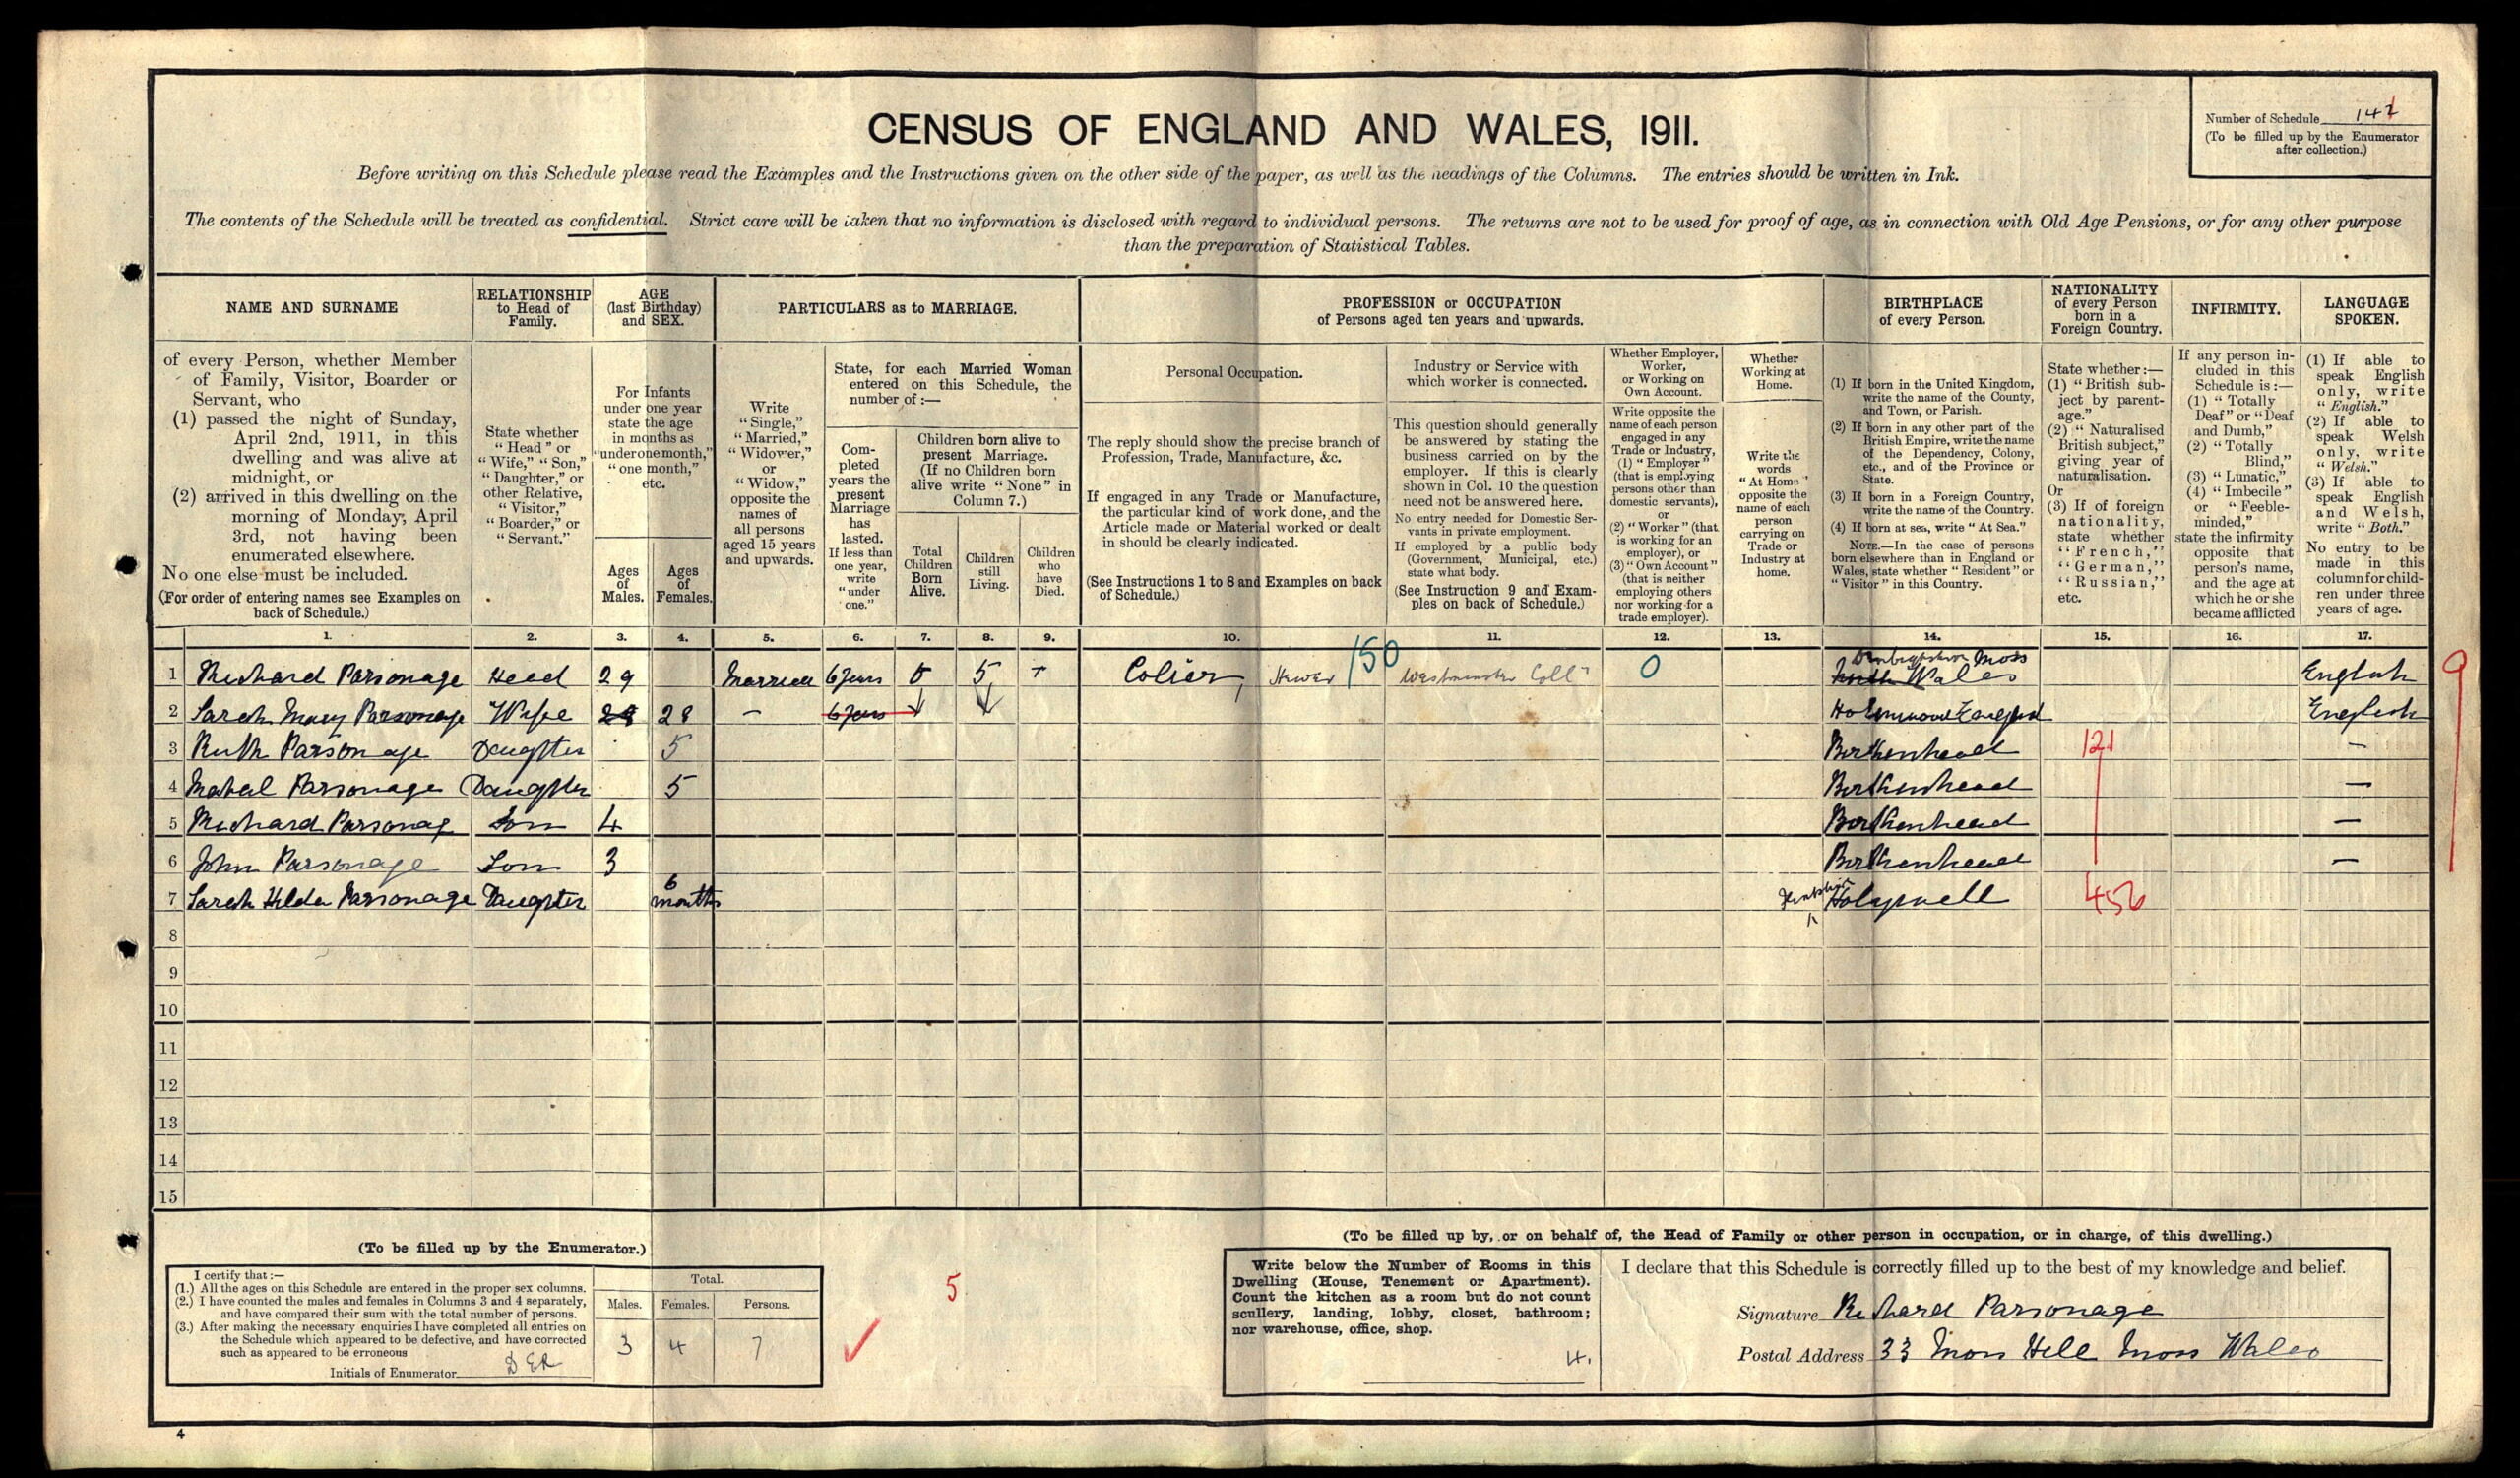 CENSUS OF ENGLAND AND WALES, 1911.
Number of Schedule 14
(To be filled up by the Enumerator
after collection.)
Before writing on this Schedule please read the Examples and the Instructions given on the other side of the paper, as well as the headings of the Columns. The entries should be written in Ink.
The contents of the Schedule will be treated as confidential. Strict care will be taken that no information is disclosed with regard to individual persons. The returns are not to be used for proof of age, as in connection with Old Age Pensions, or for any other purpose
than the preparation of Statistical Tables.
NAME AND SURNAME
of every Person, whether Member
of Family, Visitor, Boarder or
Servant, who
(1) passed the night of Sunday,
April 2nd, 1911, in this
dwelling and was alive at
midnight, or
(2) arrived in this dwelling on the
morning of Monday, April
3rd, not having been
enumerated elsewhere.
No one else must be included.
(For order of entering names see Examples on
back of Schedule.)
RELATIONSHIP
to Head of
Family.
State whether
"Head" or
"Wife," "Son,"
"Daughter," or
other Relative,
"Visitor,"
"Boarder," or
"Servant."
AGE
(last Birthday)
and SEX.
For Infants
under one year
state the age
in months as
"under one month,"
"one month,"
etc.
Ages
of
Males.
Ages
of
Females.
PARTICULARS as to MARRIAGE.
Write
"Single,"
"Married,"
"Widower,"
or
"Widow,"
opposite the
names of
all persons
aged 15 years
and upwards.
State, for each Married Woman
entered on this Schedule, the
number of :—
Com-
pleted
years the
present
Marriage
has
lasted.
If less than
one year,
write
"under
one."
Children born alive to
present Marriage.
(If no Children born
alive write "None" in
Column 7.)
Total
Children
Born
Alive.
Children
still
Living.
Children
who
have
Died.
PROFESSION or OCCUPATION
of Persons aged ten years and upwards.
Personal Occupation.
The reply should show the precise branch of
Profession, Trade, Manufacture, &c.
If engaged in any Trade or Manufacture,
the particular kind of work done, and the
Article made or Material worked or dealt
in should be clearly indicated.
(See Instructions 1 to 8 and Examples on back
of Schedule.)
Industry or Service with
which worker is connected.
This question should generally
be answered by stating the
business carried on by the
employer. If this is clearly
shown in Col. 10 the question
need not be answered here.
No entry needed for Domestic Ser-
vants in private employment.
If employed by a public body
(Government, Municipal, etc.)
state what body.
(See Instruction 9 and Exam-
ples on back of Schedule.)
Whether Employer,
Worker,
or Working on
Own Account.
Write opposite the
name of each person
engaged in any
Trade or Industry,
(1) "Employer"
(that is employing
persons other than
domestic servants),
or
(2) "Worker" (that
is working for an
employer), or
(3) "Own Account"
(that is neither
employing others
nor working for a
trade employer).
Whether
Working at
Home.
Write the
words
"At Home"
opposite the
name of each
person
carrying on
Trade or
Industry at
home.
BIRTHPLACE
of every Person.
(1) If born in the United Kingdom,
write the name of the County,
and Town, or Parish.
(2) If born in any other part of the
British Empire, write the name
of the Dependency, Colony,
etc., and of the Province or
State.
(3) If born in a Foreign Country,
write the name of the Country.
(4) If born at sea, write "At Sea."
NOTE.—In the case of persons
born elsewhere than in England or
Wales, state whether "Resident" or
"Visitor" in this Country.
NATIONALITY
of every Person
born in a
Foreign Country.
State whether :—
(1) "British sub-
ject by parent-
age."
(2) "Naturalised
British subject,"
giving year of
naturalisation.
Or
(3) If of foreign
nationality,
state whether
"French,"
"German,"
"Russian,"
etc.
INFIRMITY.
If any person in-
cluded in this
Schedule is :—
(1) "Totally
Deaf" or "Deaf
and Dumb,"
(2) "Totally
Blind,"
(3) "Lunatic,"
(4) "Imbecile"
or "Feeble-
minded,"
state the infirmity
opposite that
person's name,
and the age at
which he or she
became afflicted
LANGUAGE
SPOKEN.
(1) If able to
speak English
only, write
"English."
(2) If able to
speak Welsh
only, write
"Welsh."
(3) If able to
speak English
and Welsh,
write "Both."
No entry to be
made in this
column for child-
ren under three
years of age.
1. 2. 3. 4. 5. 6. 7. 8. 9. 10. 11. 12. 13. 14. 15. 16. 17.
1 Richard Parsonage Head 29 Married 6 Years 5 5 Colier, Hewer 150 Westminster Coll 0 Denbighshire Moss North Wales English 9
2 Sarah Mary Parsonage Wife 28 28 — 6 Years English
3 Ruth Parsonage Daughter 5 Berkenhead 121 —
4 Mabel Parsonage Daughter 5 Berkenhead —
5 Richard Parsonag Son 4 Berkenhead —
6 John Parsonage Son 3 Berkenhead —
7 Sarah Hilda Parsonage Daughter 6 months Flintshire Holywell 456
8
9
10
11
12
13
14
15
(To be filled up by the Enumerator.)
I certify that :—
(1.) All the ages on this Schedule are entered in the proper sex columns.
(2.) I have counted the males and females in Columns 3 and 4 separately,
and have compared their sum with the total number of persons.
(3.) After making the necessary enquiries I have completed all entries on
the Schedule which appeared to be defective, and have corrected
such as appeared to be erroneous
Initials of Enumerator DER
Total.
Males. Females. Persons.
3 4 7
5
(To be filled up by, or on behalf of, the Head of Family or other person in occupation, or in charge, of this dwelling.)
Write below the Number of Rooms in this
Dwelling (House, Tenement or Apartment).
Count the kitchen as a room but do not count
scullery, landing, lobby, closet, bathroom;
nor warehouse, office, shop.
4.
I declare that this Schedule is correctly filled up to the best of my knowledge and belief.
Signature Richard Parsonage
Postal Address 33 Moss Hill Moss Wales
4